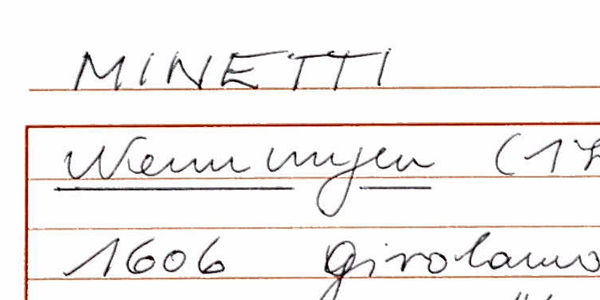 MINETTI
Nennungen (17
1606 Girolamo